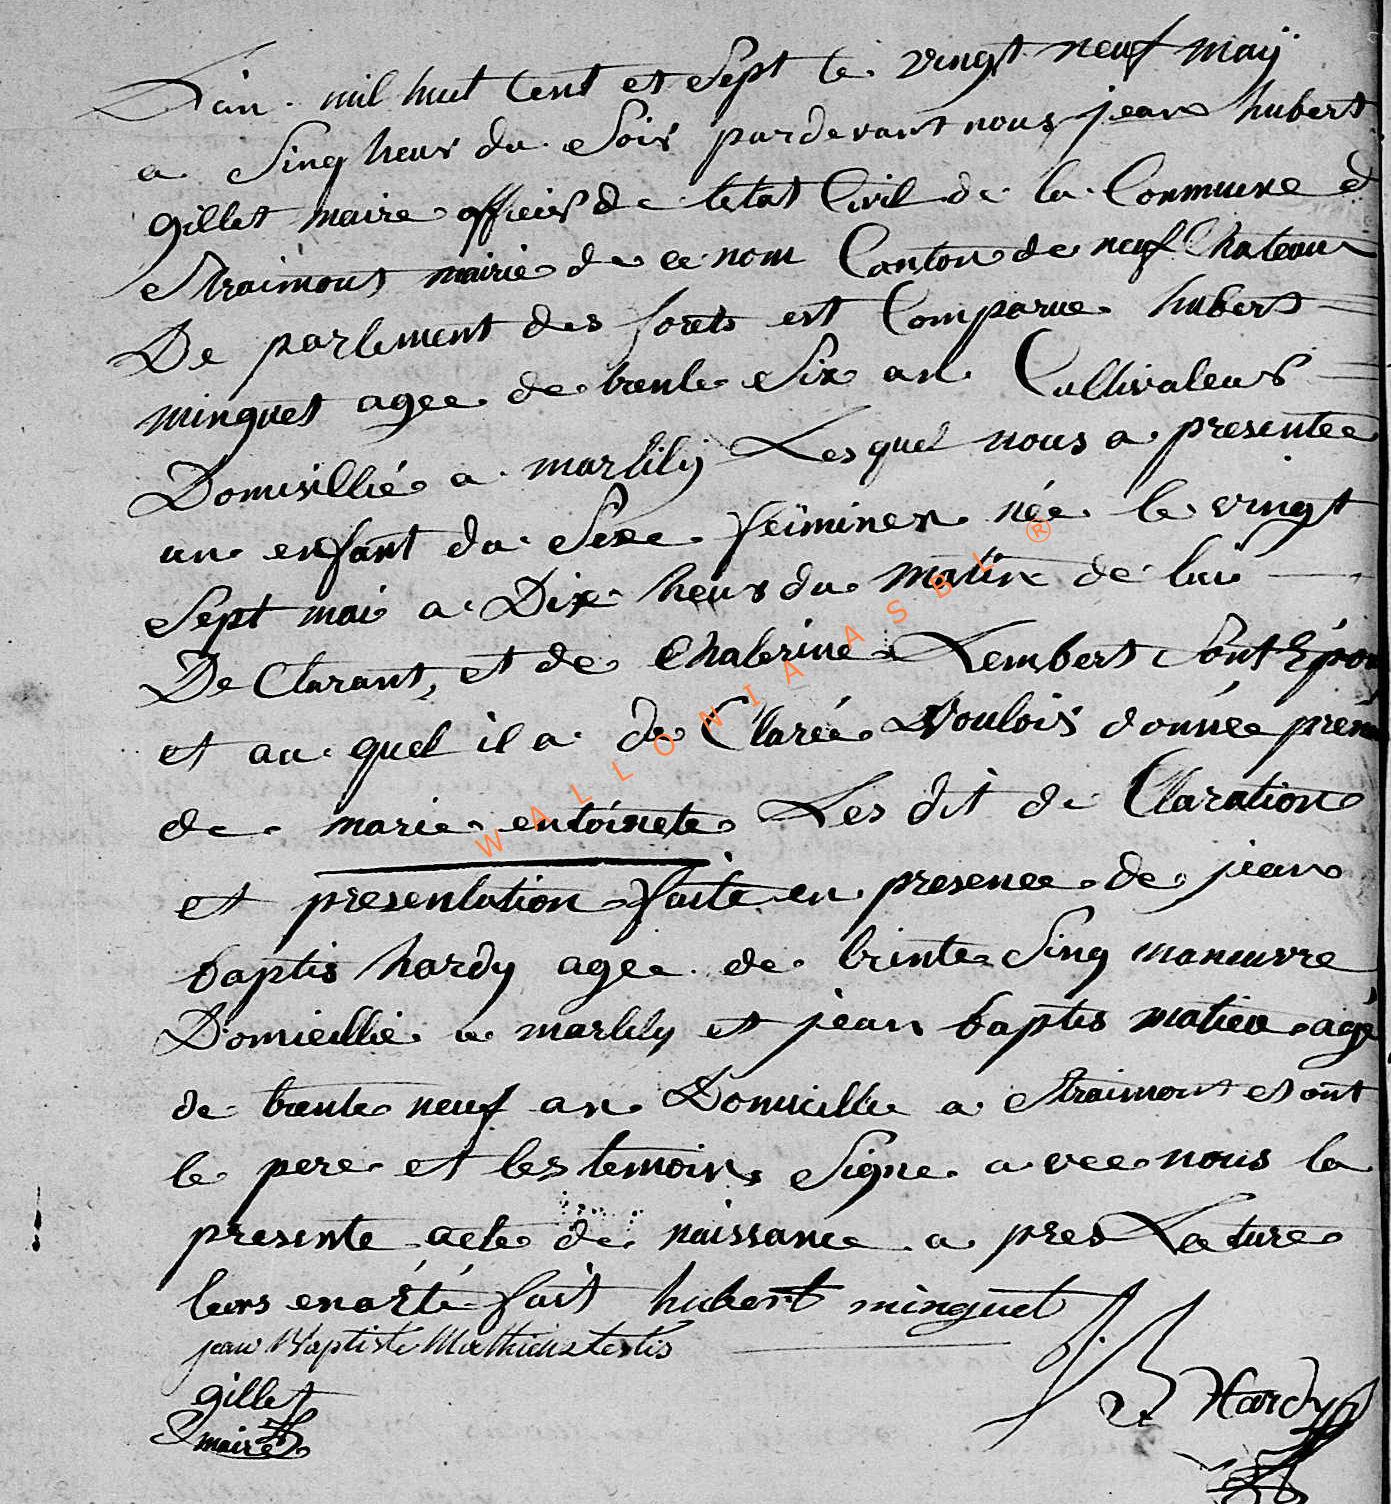 L'an mil huit Cent et Sept le vingt neuf maÿ
a Sinq heur du Soir pardevant nous jean hubert
gillet maire officier de letat Civil de la Commune d
Straimont mairie de ce nom Canton de neuf Chateau
De parlement des forets est Comparue hubert
minguet agee de trente Six an Cultivateur
Domisillié a martilly Lesquel nous a presentee
un enfant du Sexe feiminen née le vingt
Sept mai a Dix heur du matin de lui
De Clarant, et de Chaterine Lembert Sont Epou
et au quel il a de Clarée Voulois donnée prén
de marie entoinete Les dit de Claration
et presentation faite en presence de jean
baptis hardy agee de trinte Sinq maneuvre
Domicillie a martily et jean baptis matieu agé
de trente neuf an Domicillie a Straimont et ont
le pere et les temoins Signe avec nous la
presente acte de naissance a pres Lecture
leurs en a été fait hubert minguet
jean Baptiste Mathieu testis
gillet J B Hardy
maire
WALLONIA ASBL ®